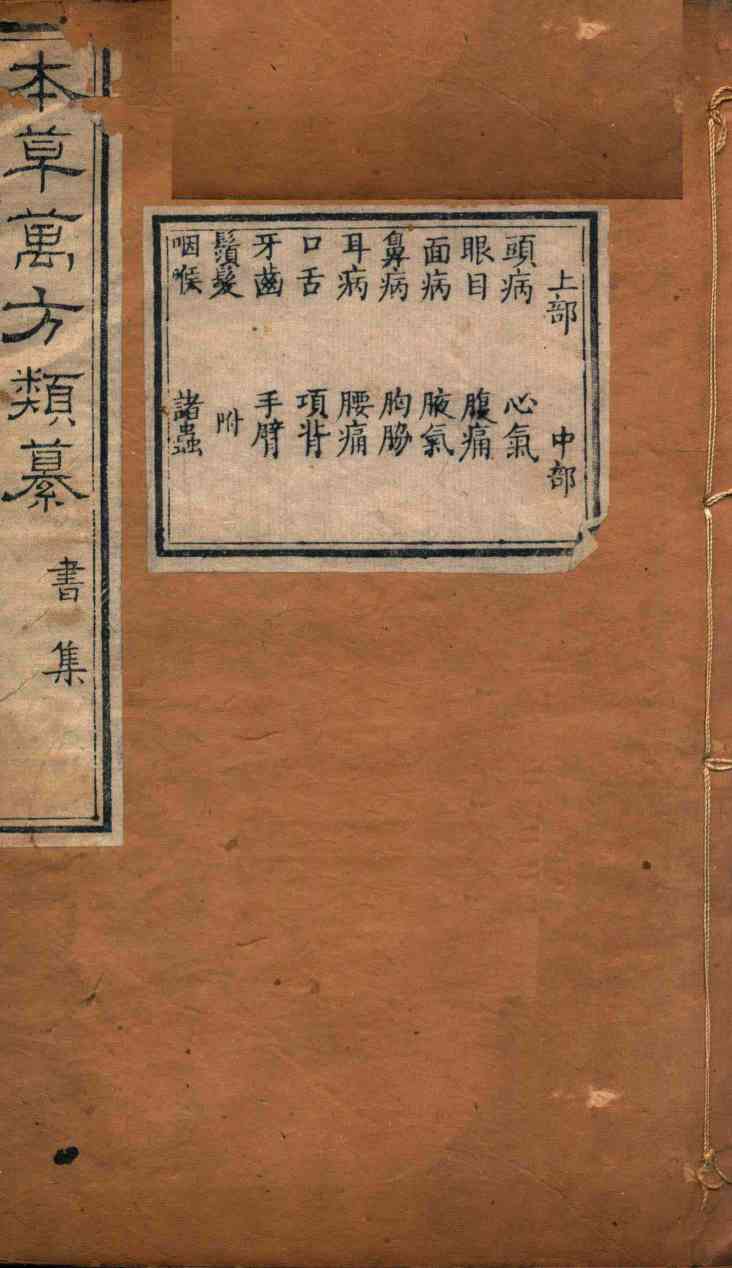 上部 中部
頭病 心氣
眼目 腹痛
面病 腋氣
鼻病 胸脇
耳病 腰痛
口舌 項背
牙齒 手臂
鬚髮 附
咽喉 諸蟲
本草萬方類纂 書集